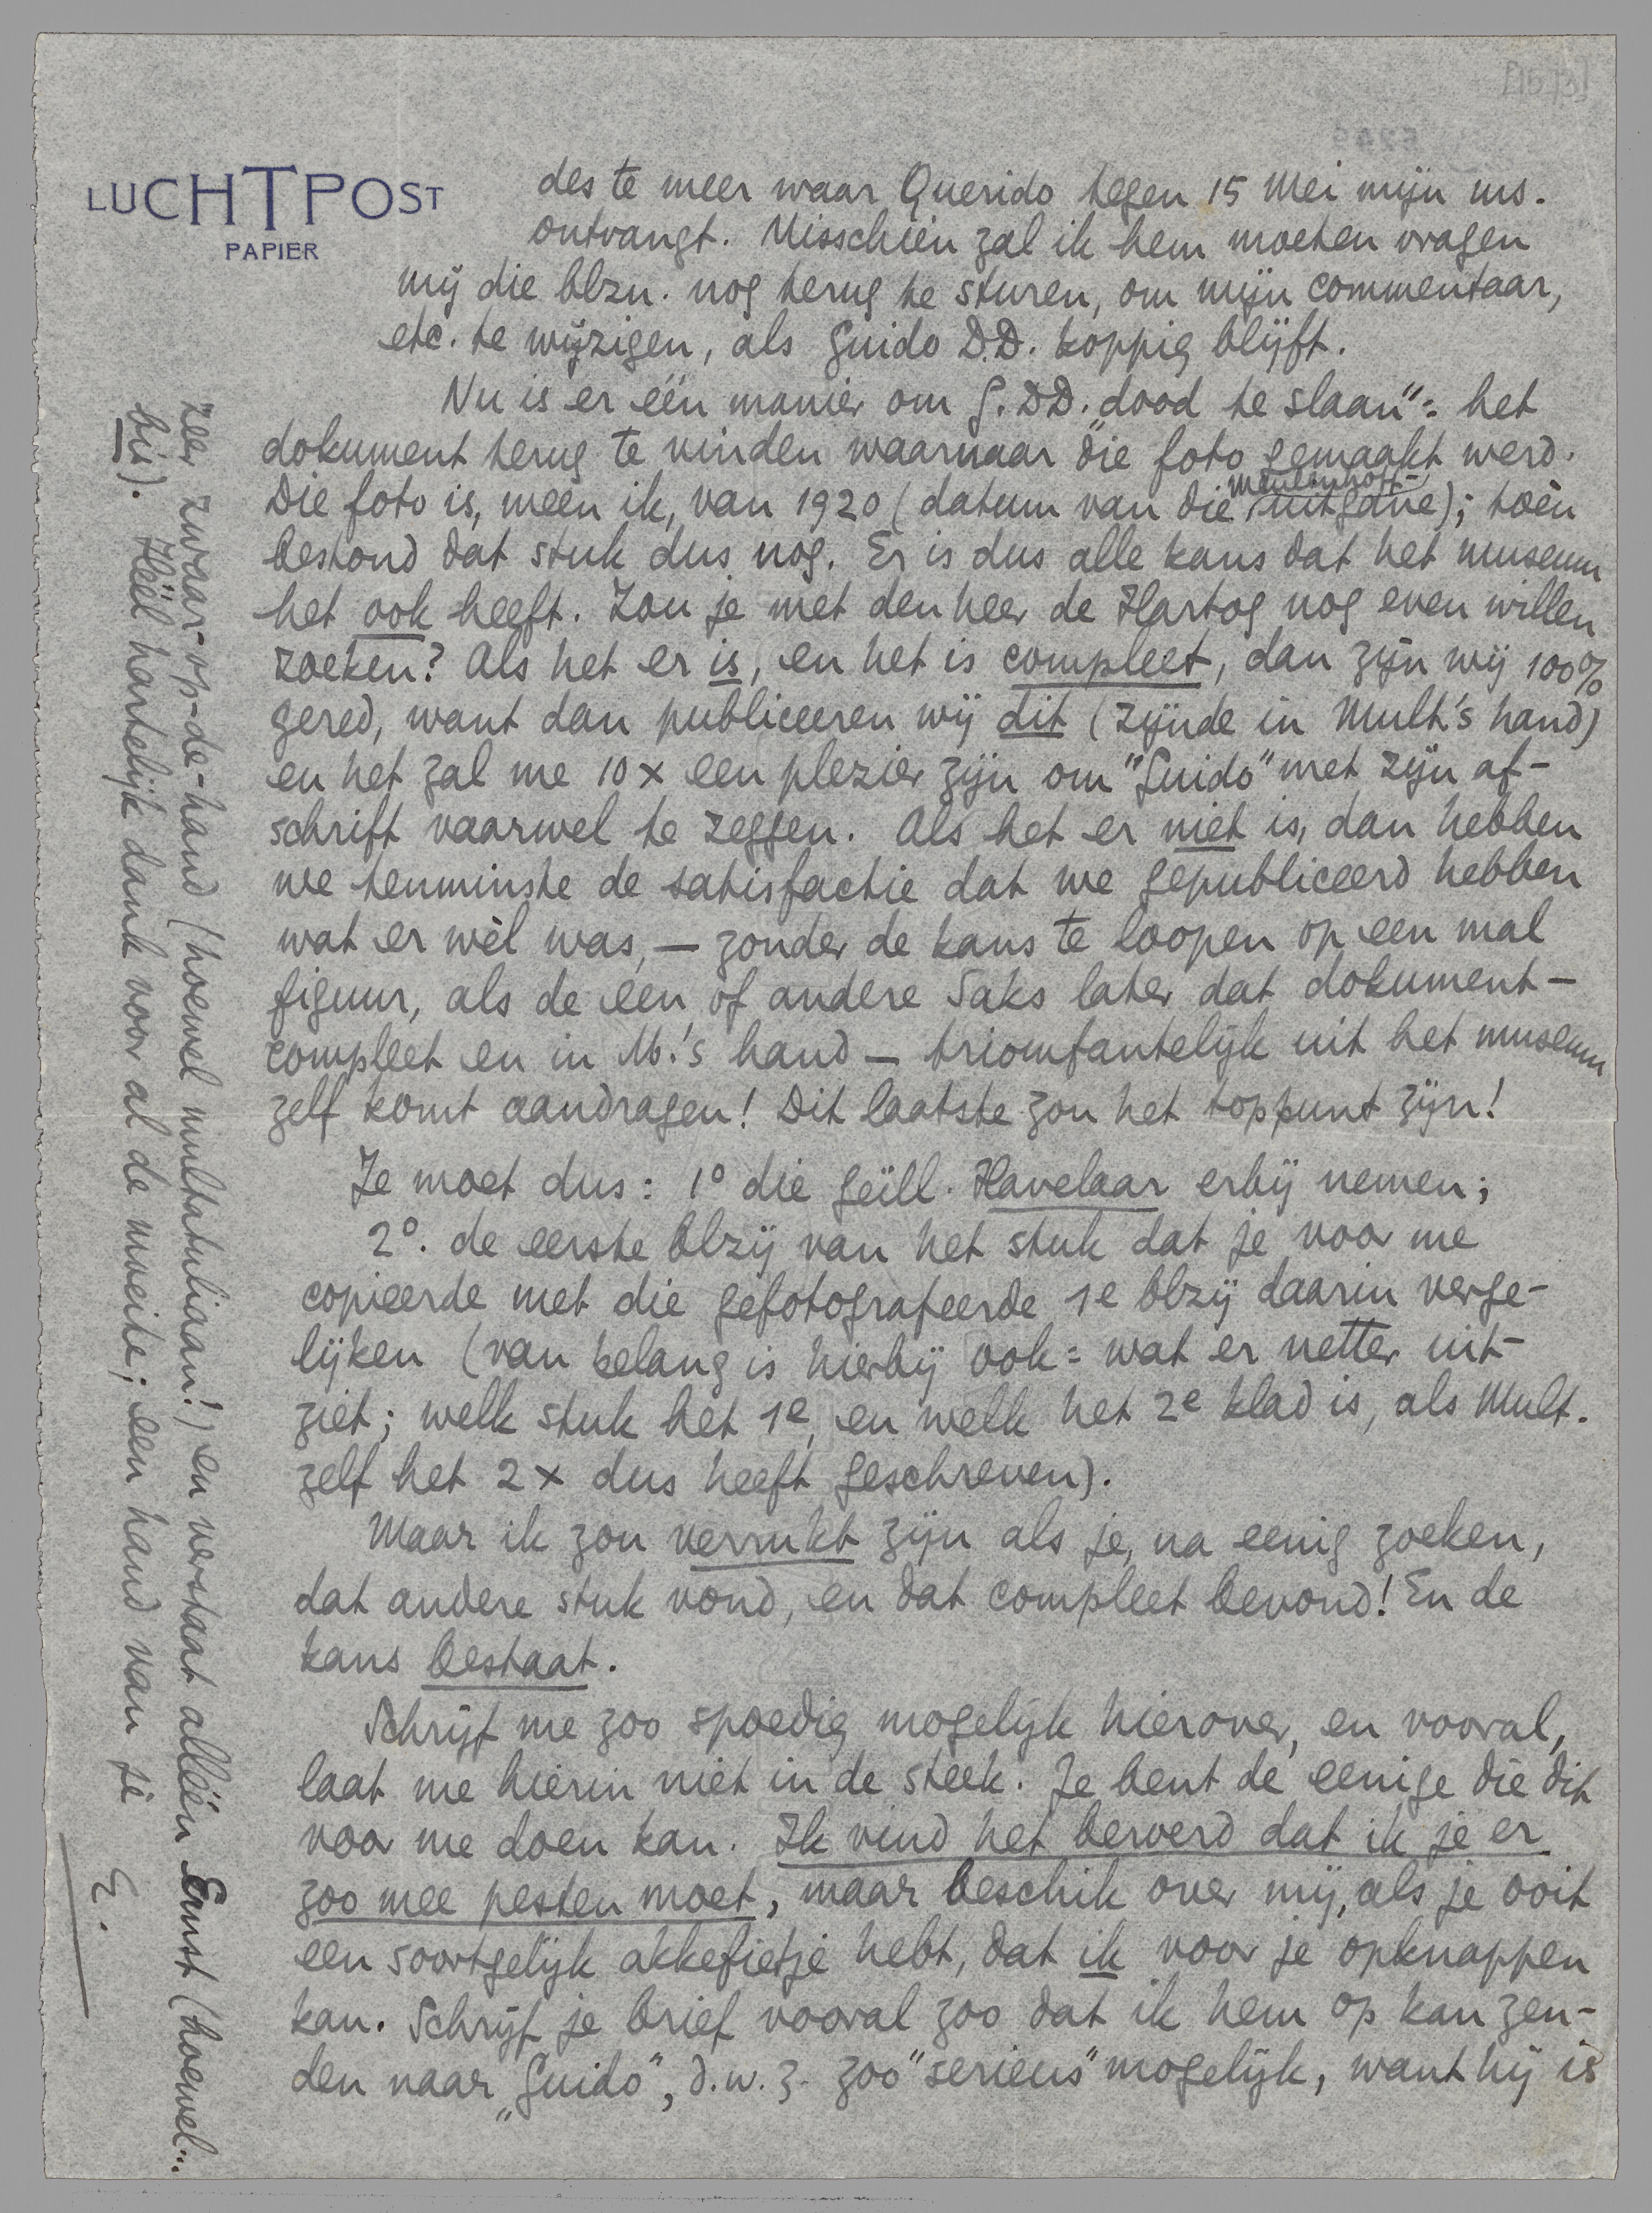 LUCHTPOST
PAPIER
des te meer waar Querido tegen 15 Mei mijn ms.
ontvangt. Misschien zal ik hem moeten vragen
mij die blzn. nog terug te sturen, om mijn commentaar,
etc. te wijzigen, als Guido D.D. koppig blijft.
Nu is er één manier om G.DD. „dood te slaan": het
dokument terug te vinden waarnaar die foto gemaakt werd.
Die foto is, meen ik, van 1920 (datum van die Meulenhoff-uitgave); toèn
bestond dat stuk dus nog. Er is dus alle kans dat het museum
het ook heeft. Zou je met den heer de Hartog nog even willen
zoeken? Als het er is, en het is compleet, dan zijn wij 100%
gered, want dan publiceeren wij dit (zijnde in Mult.'s hand)
en het zal me 10 x een plezier zijn om "Guido" met zijn af-
schrift vaarwel te zeggen. Als het er niet is, dan hebben
we tenminste de satisfactie dat we gepubliceerd hebben
wat er wèl was, — zonder de kans te loopen op een mal
figuur, als de een of andere Saks later dat dokument —
compleet en in M.'s hand — triomfantelijk uit het museum
zelf komt aandragen! Dit laatste zou het toppunt zijn!
Je moet dus: 1° die geïll. Havelaar erbij nemen;
2°. de eerste blzij van het stuk dat je voor me
copieerde met die gefotografeerde 1e blzij daarin verge-
lijken (van belang is hierbij ook: wat er netter uit-
ziet; welk stuk het 1e, en welk het 2e klad is, als Mult.
zelf het 2 x dus heeft geschreven).
Maar ik zou verrukt zijn als je, na eenig zoeken,
dat andere stuk vond, en dat compleet bevond! En de
kans bestaat.
Schrijf me zoo spoedig mogelijk hierover, en vooral,
laat me hierin niet in de steek. Je bent de eenige die dit
voor me doen kan. Ik vind het beroerd dat ik je er
zoo mee pesten moet, maar beschik over mij, als je ooit
een soortgelijk akkefietje hebt, dat ik voor je opknappen
kan. Schrijf je brief vooral zoo dat ik hem op kan zen-
den naar „Guido", d.w.z. zoo "serieus" mogelijk, want hij is
zeer zwaar-op-de-hand (hoewel multatuliaan!) en verstaat alléén Ernst (hoewel...
bis). Héél hartelijk dank voor al de moeite; een hand van je
E.